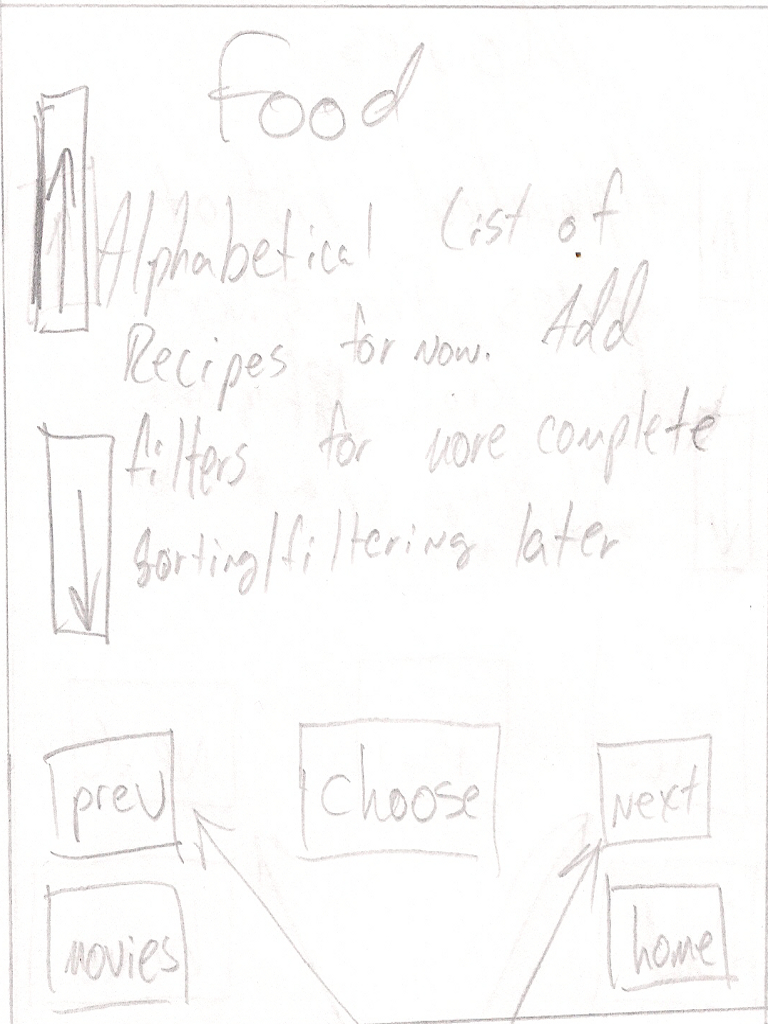 Food
Alphabetical list of
Recipes for now. Add
filters for more complete
sorting/filtering later
prev
choose
Next
movies
home